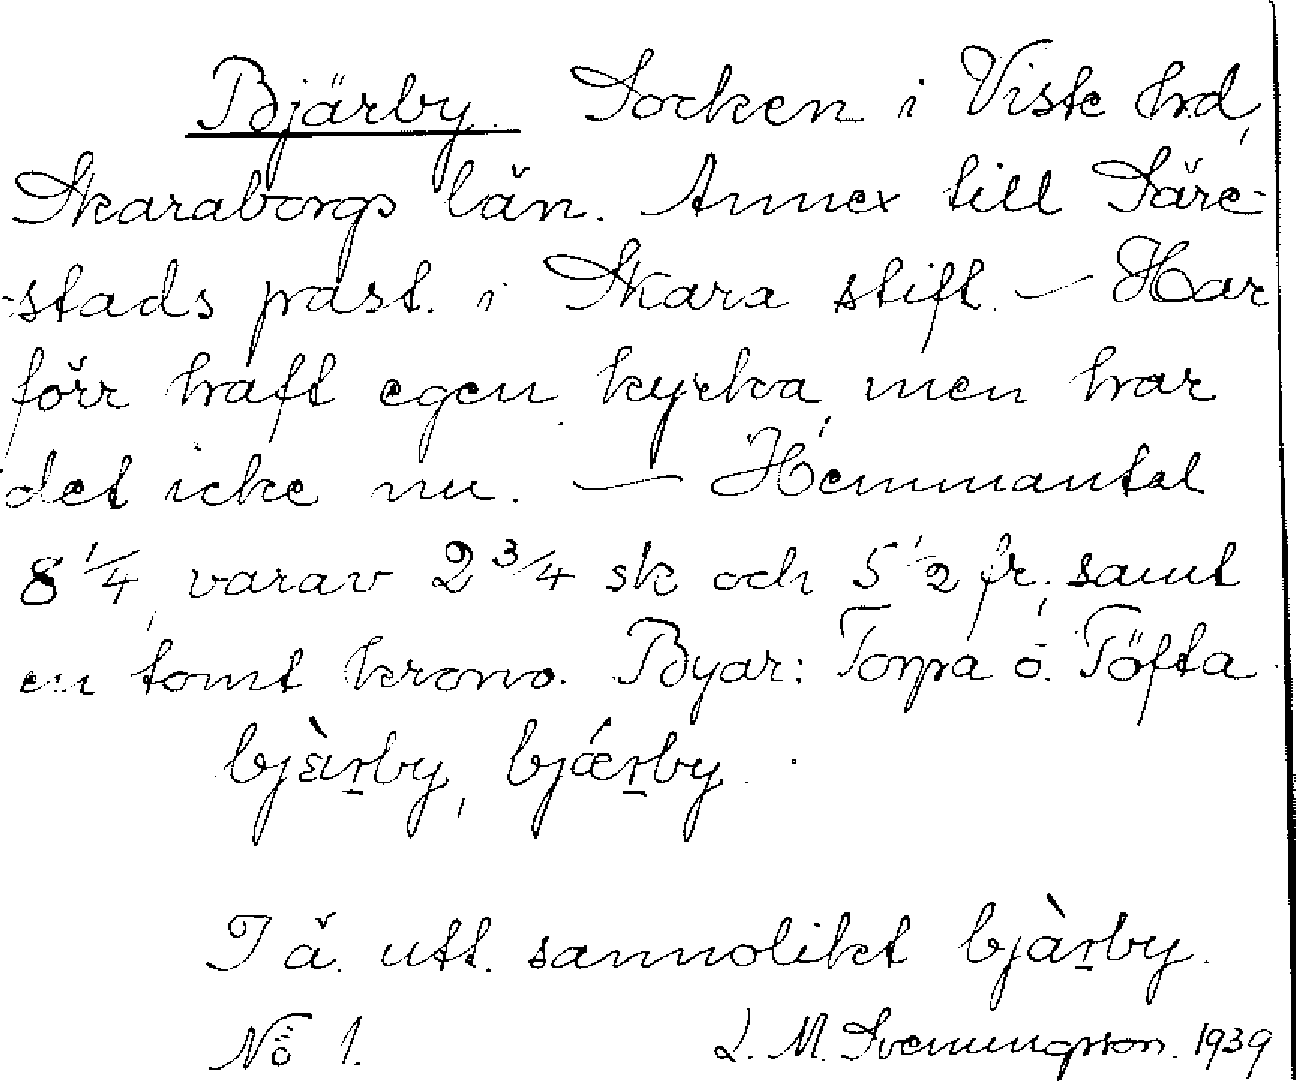 Bjärby. Socken i Viste hrd,
Skaraborgs län. Annex till Säre-
-stads past. i Skara stift. — Har
förr haft egen kyrka, men har
det icke nu. — Hemmantal
8 1/4, varav 2 3/4 sk och 5 1/2 fr, samt
en tomt krono. Byar: Torpa o. Töfta
bjæ̀ṟby, bjǽṟby.
I ä. utt. sannolikt bjàṟby.
No 1. L. M. Svenungsson. 1939